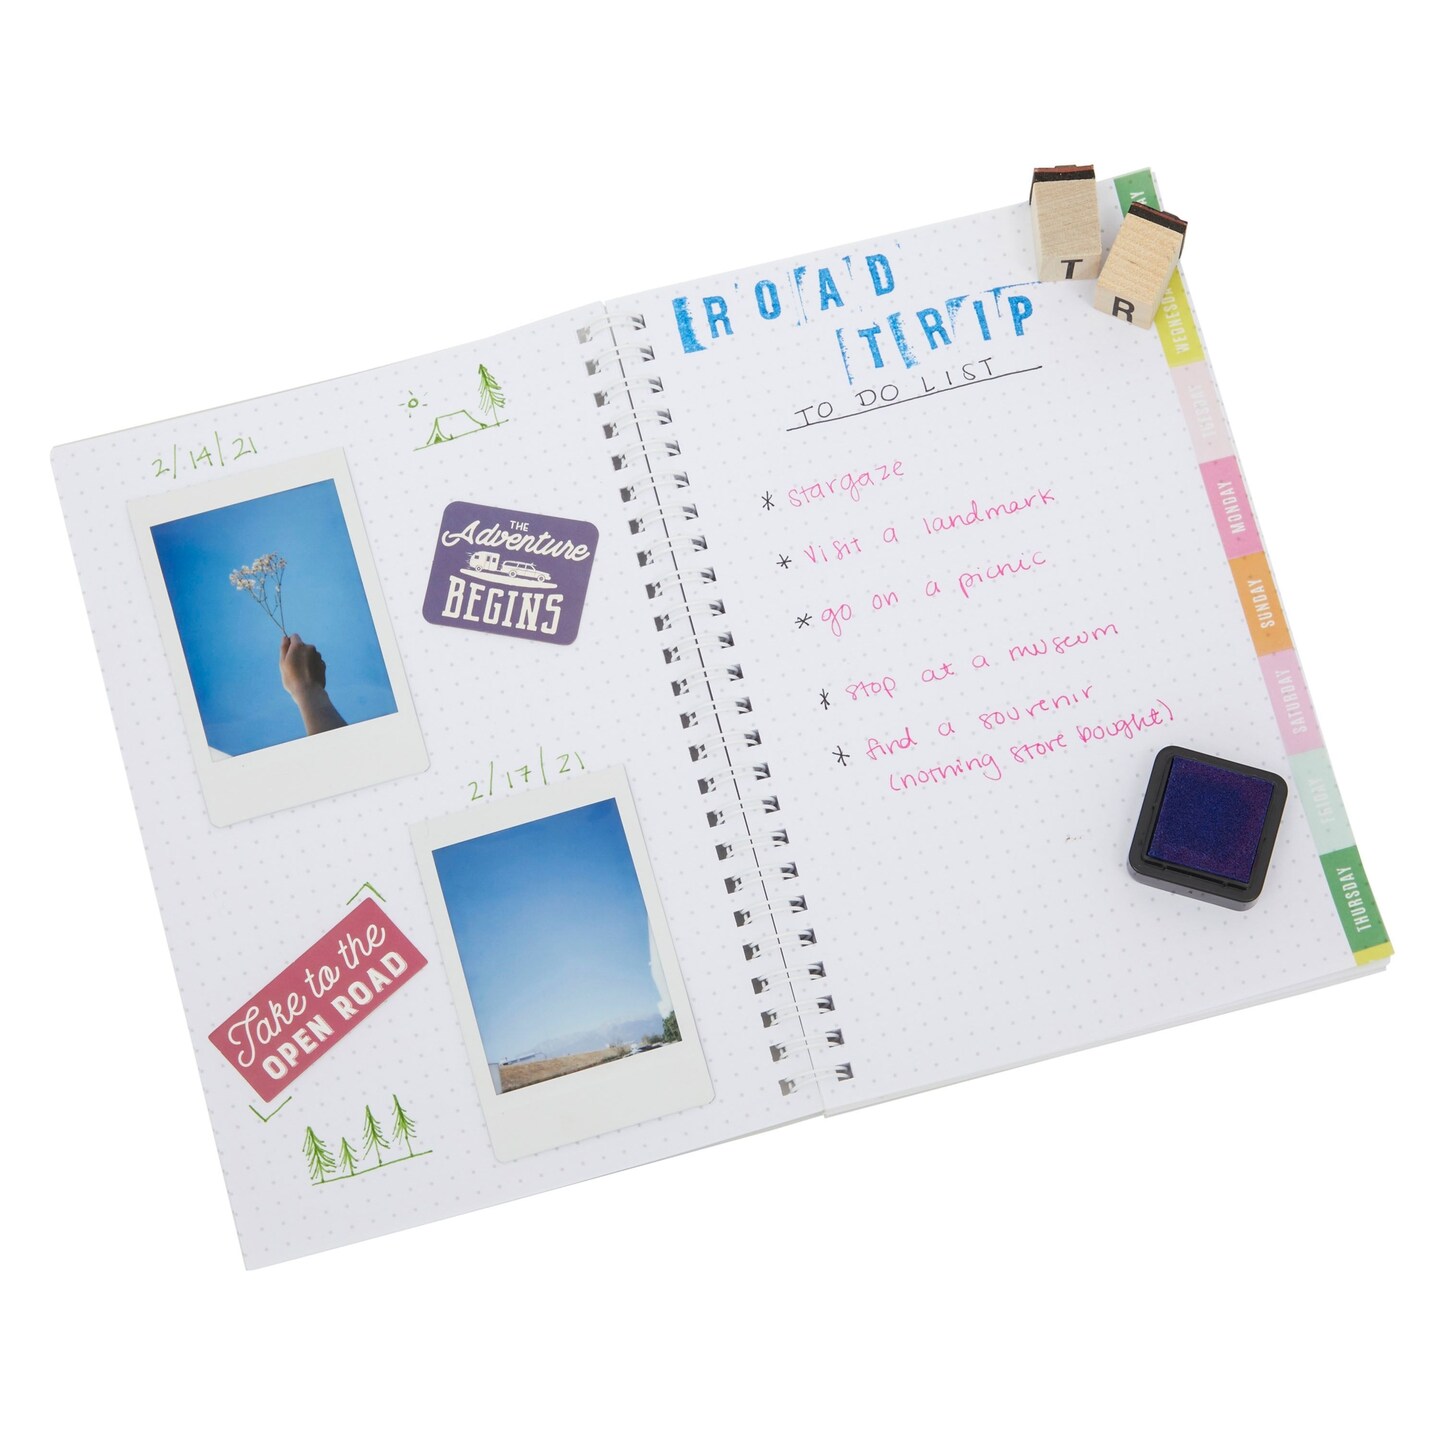 2/14/21
THE
Adventure
BEGINS
2/17/21
Take to the
OPEN ROAD
ROAD
TRIP
TO DO LIST
* stargaze
* visit a landmark
* go on a picnic
* stop at a museum
* find a souvenir
(nothing store bought)
T
R
MONDAY
SUNDAY
SATURDAY
THURSDAY